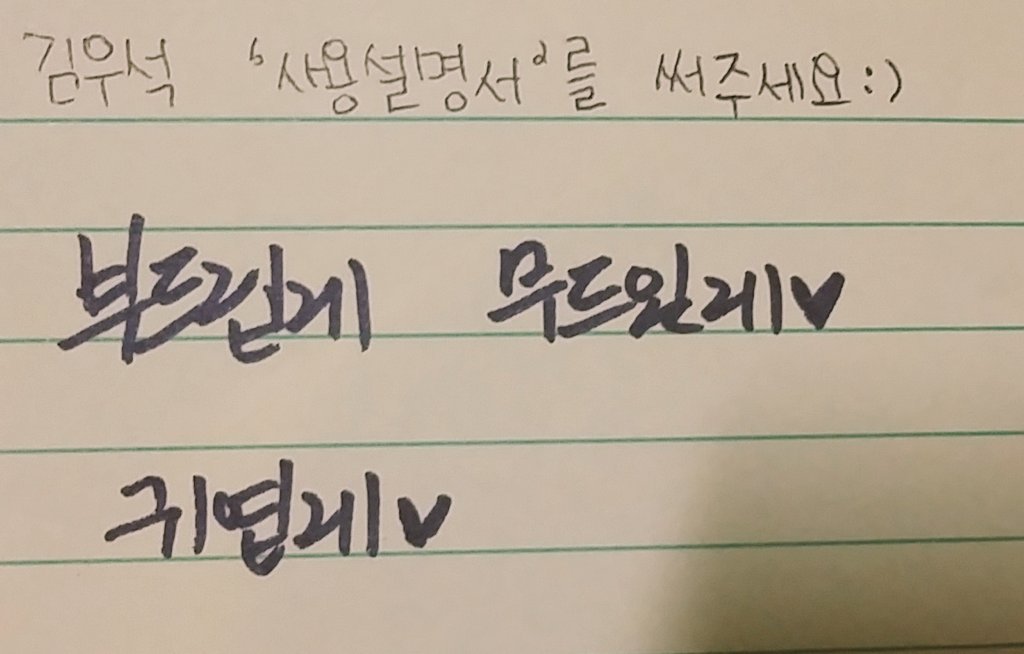 김우석 '사용설명서'를 써주세요:)
부드런게 무드있게♥
귀엽게♥